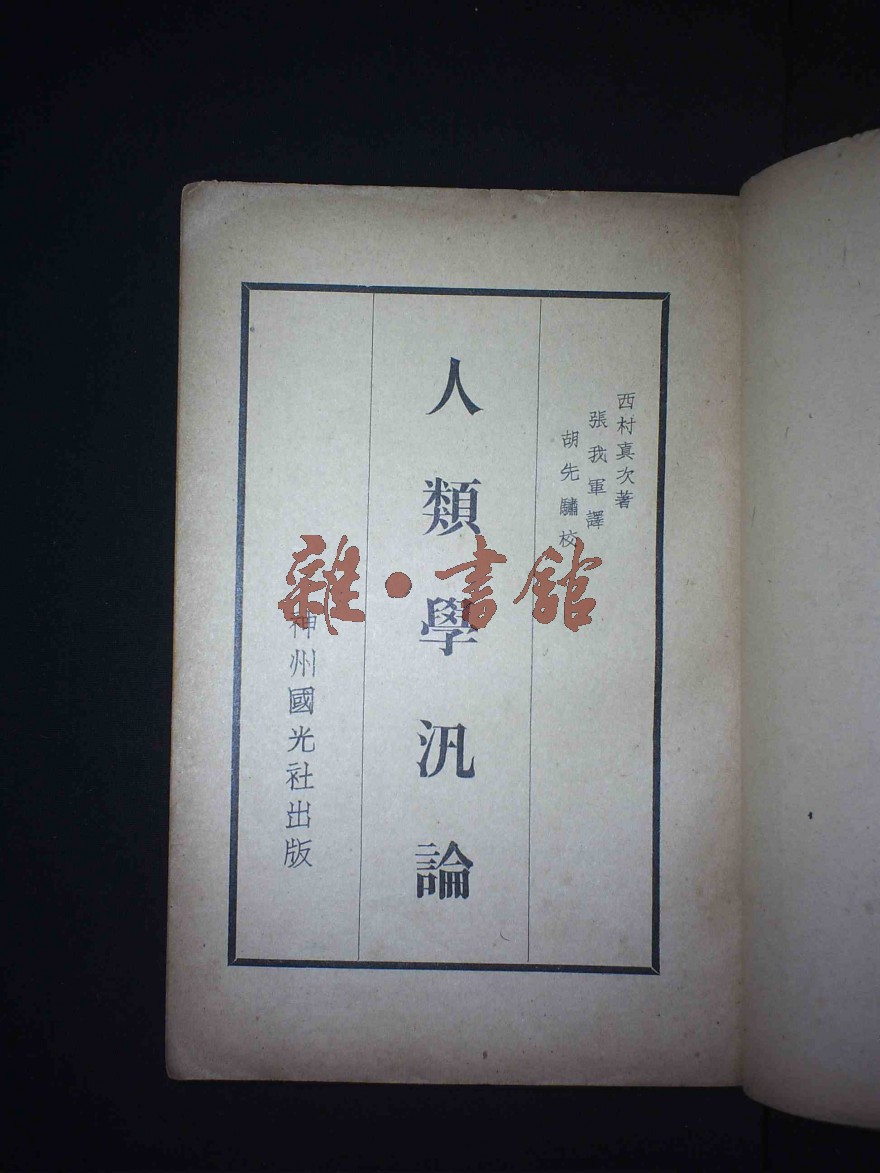 西村真次著
張我軍譯
胡先驌校
人類學汎論
神州國光社出版
雜·書館